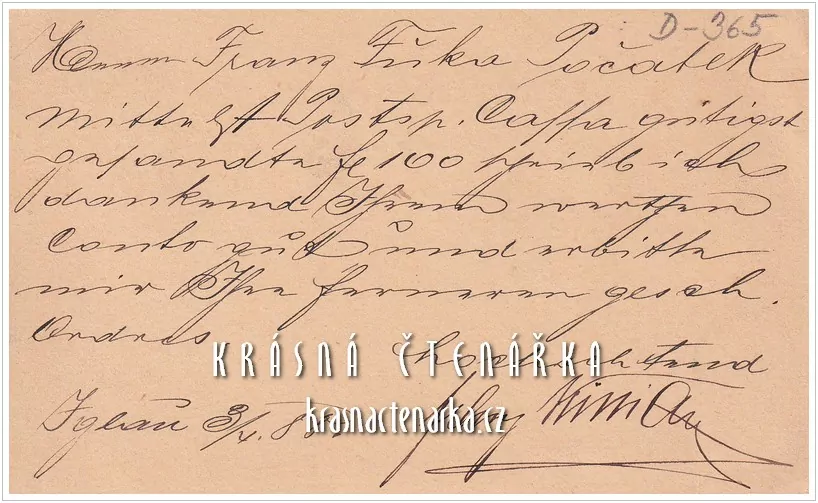 D-365
Herrn Franz Fuka Počatek
Mittelst Postsp. Cassa gütigst
gesandte f 100 schrieb ich
dankend Ihrem werthen
Conto gut und erbitte
mir Ihre ferneren gesch.
Ordres.
KRÁSNÁ ČTENÁŘKA
Hochachtend
krasnactenarka.cz
Iglau 3/